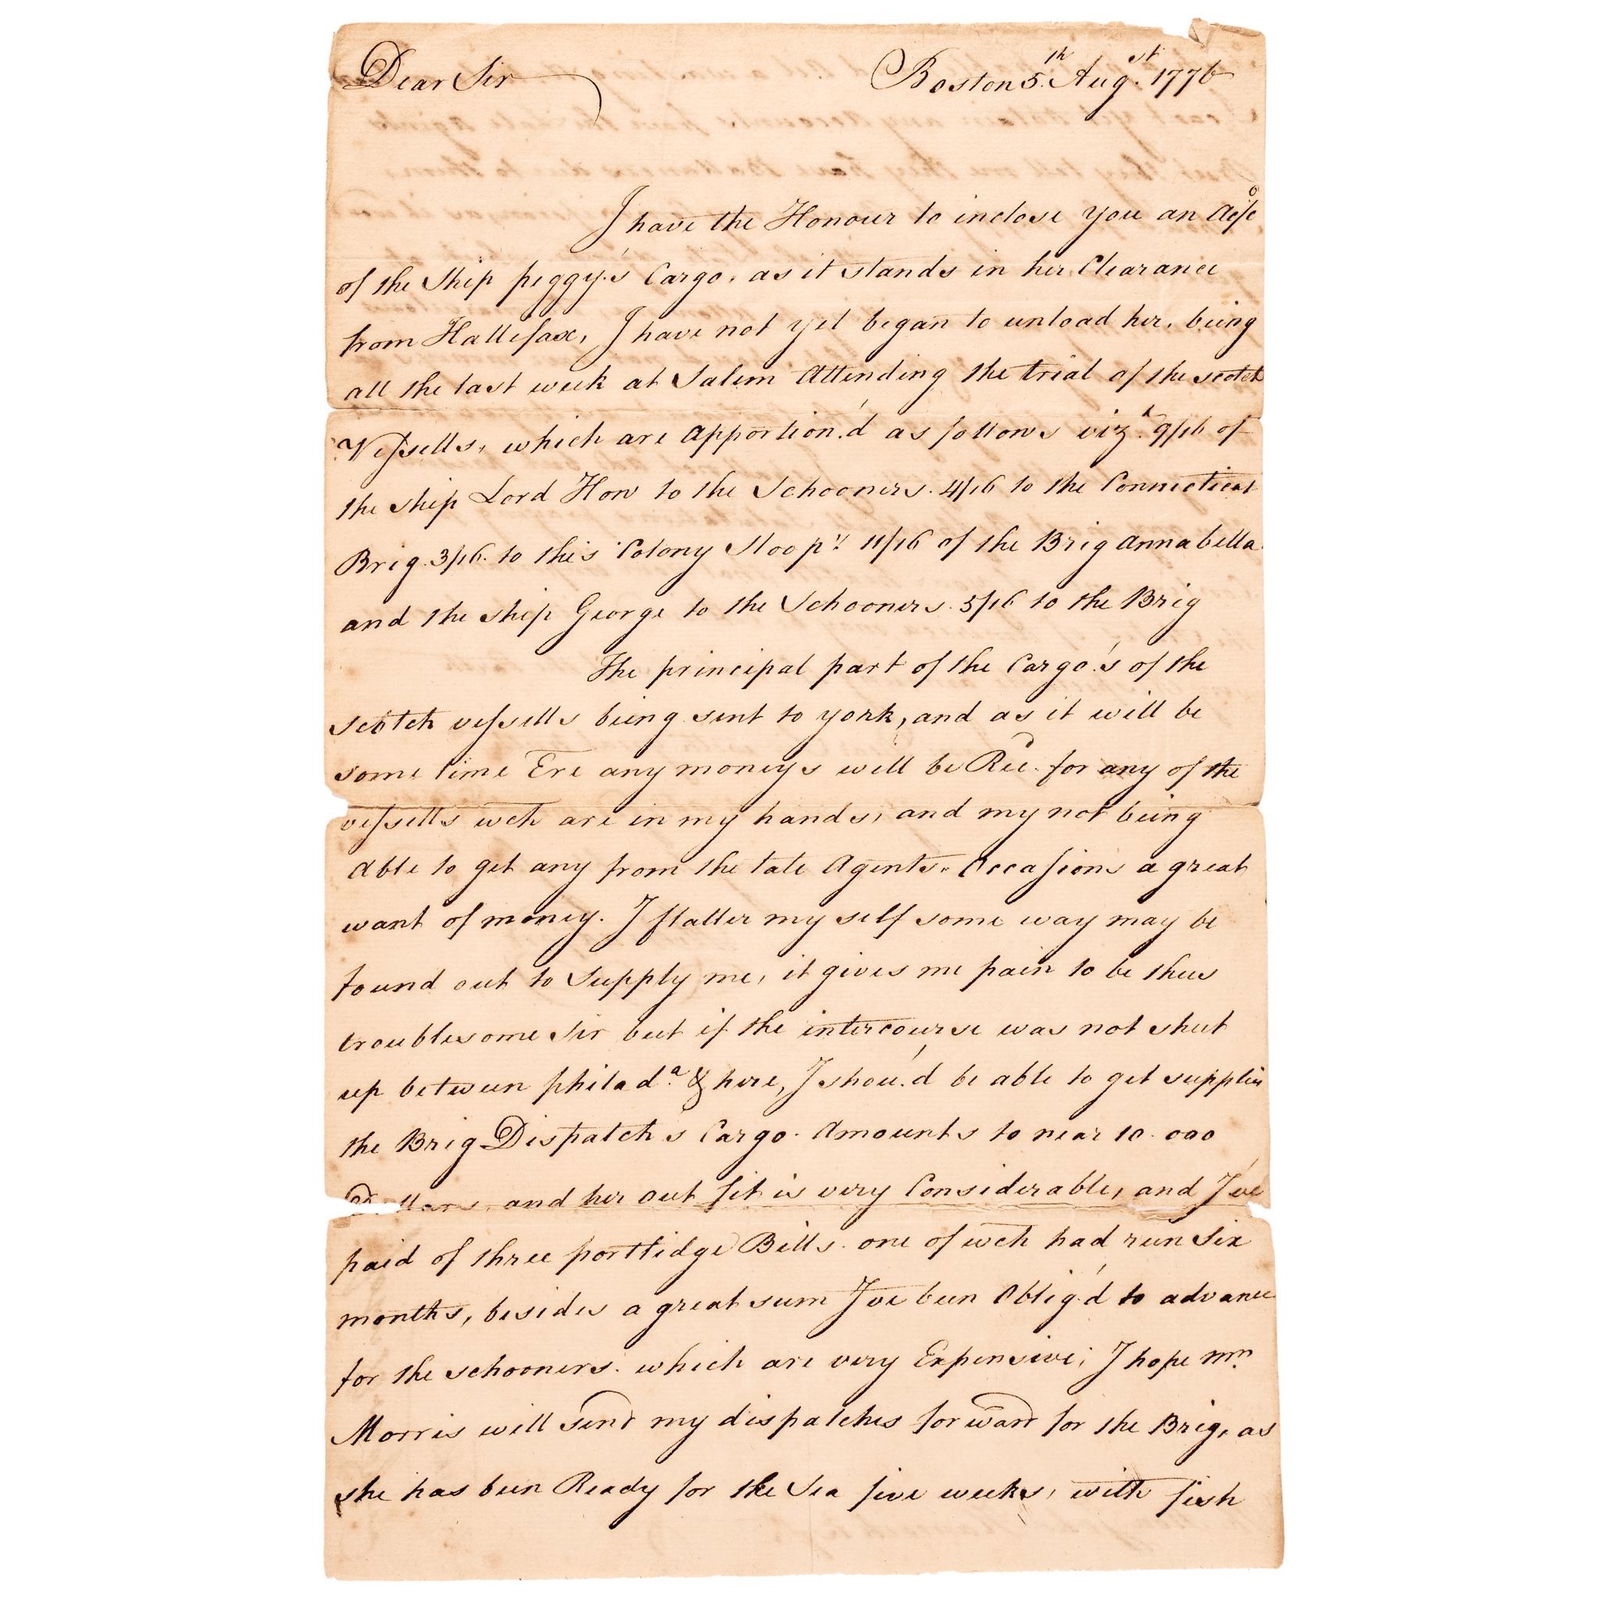 Dear Sir Boston 5th. Augst. 1776
I have the Honour to inclose you an Acco/t
of the Ship peggy's Cargo, as it stands in her Clearance
from Hallifax, I have not yet began to unload her, being
all the last week at Salem Attending the trial of the scotch
Vessells, which are apportion'd as follows vizt. 9/16 of
the ship Lord How to the Schooners. 4/16 to the Connecticut
Brig. 3/16. to this Colony Sloop; 11/16 of the Brig Annabella
and the ship George to the Schooners. 5/16 to the Brig
The principal part of the Cargo's of the
scotch vessells being sent to york, and as it will be
some time Ere any moneys will be Recd. for any of the
vessells wch are in my hands, and my not being
able to get any from the late Agents. Occasions a great
want of money. I flatter my self some way may be
found out to Supply me, it gives me pain to be thus
troublesome Sir but if the intercourse was not shut
up between philada. & here, I shou'd be able to get supplies
the Brig Dispatch's Cargo. Amounts to near 10.000
Dollars, and her out fit is very Considerable, and I've
paid of three portlidge Bills. one of wch had run Six
months, besides a great sum I've been Oblig'd to advance
for the schooners. which are very Expensive; I hope mrs
Morris will send my dispatches forward for the Brig, as
she has been Ready for the Sea five weeks, with fish